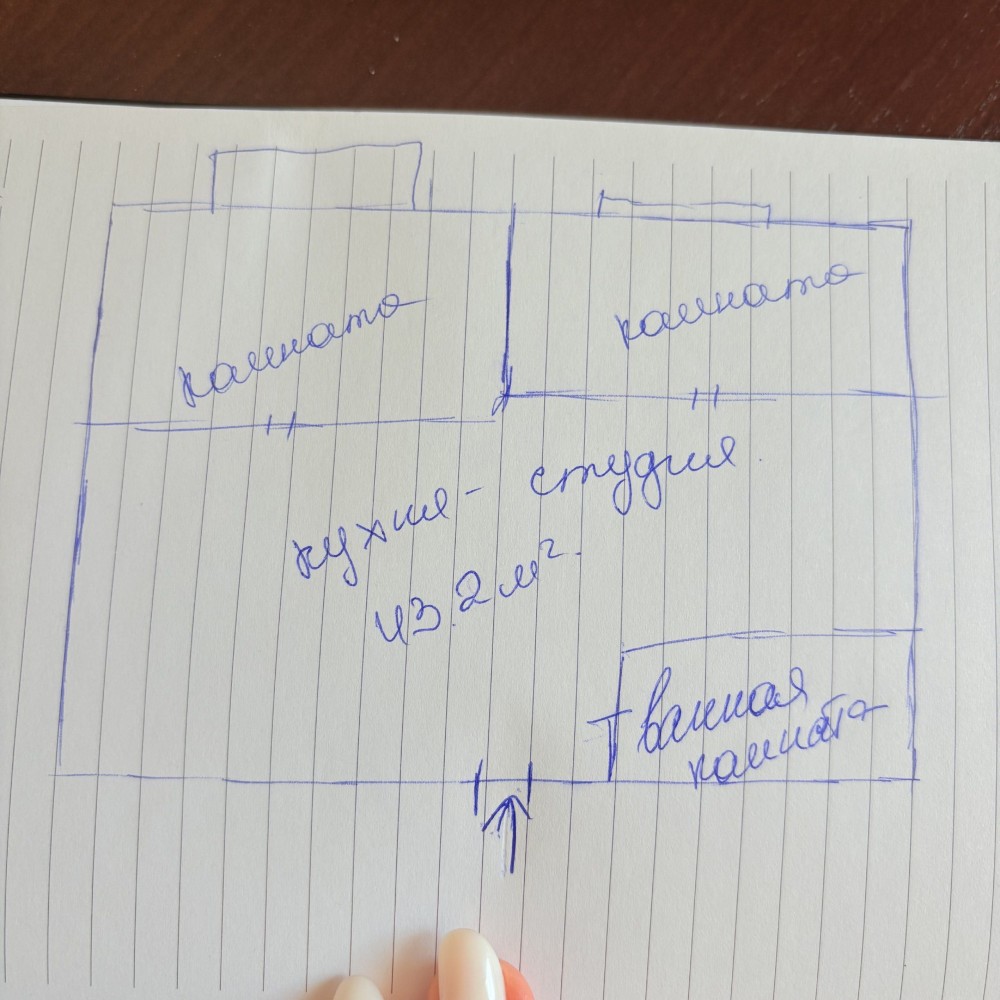 комната
комната
кухня - студия.
43.2 м².
ванная
комната